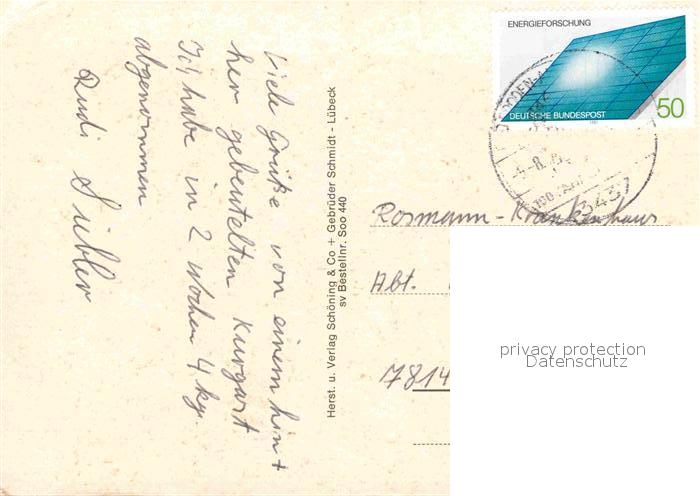 Viele Grüße von einem hin +
her gebeutelten Kurgast
Ich habe in 2 Wochen 4 kg.
abgenommen
Rudi
Herst. u. Verlag Schöning & Co + Gebrüder Schmidt - Lübeck
sv Bestellnr. Soo 440
ENERGIEFORSCHUNG
DEUTSCHE BUNDESPOST
50
Rosmann-Krankenhaus
Abt.
7814
privacy protection
Datenschutz